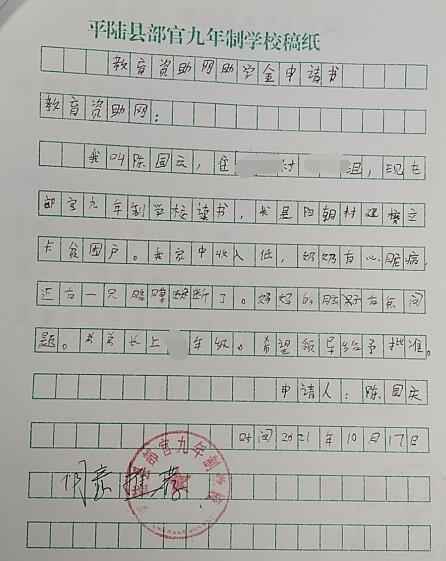 平陆县部官九年制学校稿纸
教育资助网助学金申请书
教育资助网：
我叫陈国庆，住 村 组，现在
部官九年制学校读书，我是 朝村建档立
卡贫困户。我家中收入低，奶奶有心脏病，
还有一只胳膊 断了。妈妈的脑子有点问
题。弟弟长上 年级。希望领导给予批准。
申请人：陈国庆
时间2021年10月17日
同意推荐
县部官九年制学校